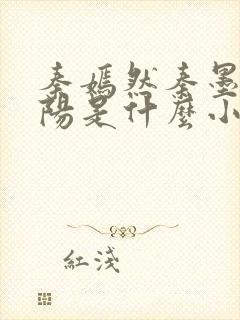 秦嫣然秦墨
陽是什麼小
紅淺